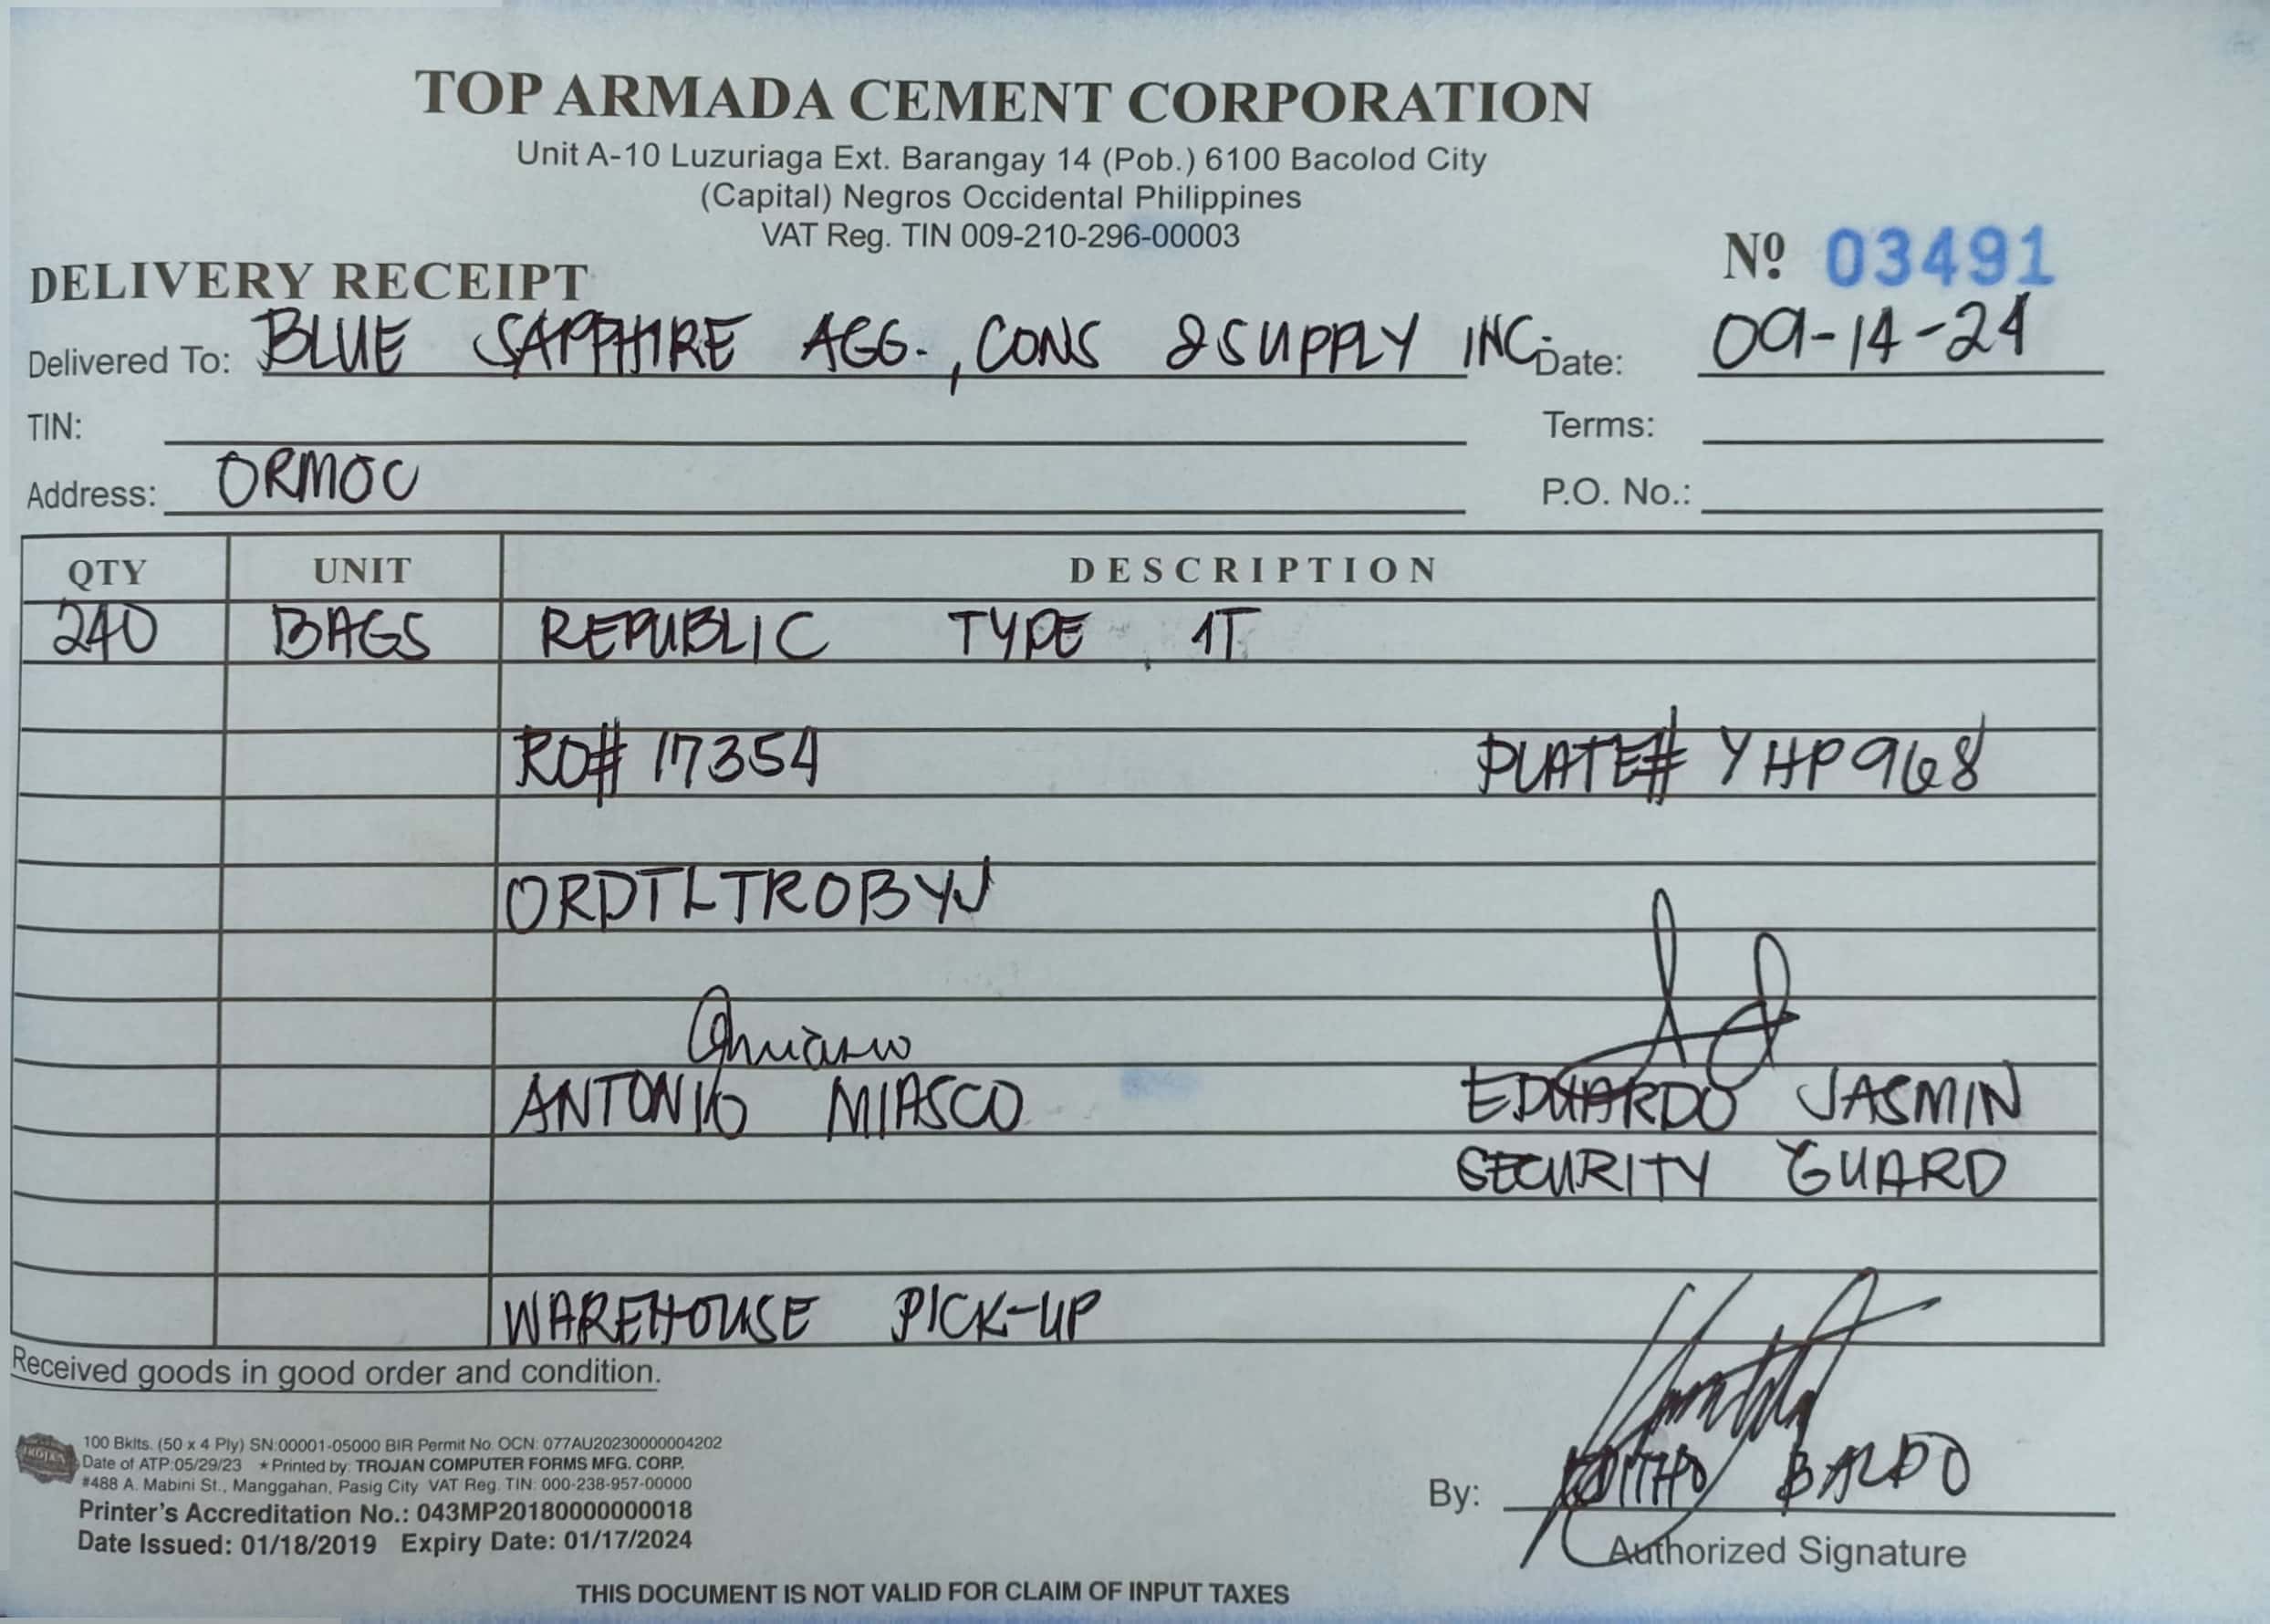 TOP ARMADA CEMENT CORPORATION
Unit A-10 Luzuriaga Ext. Barangay 14 (Pob.) 6100 Bacolod City
(Capital) Negros Occidental Philippines
VAT Reg. TIN 009-210-296-00003
DELIVERY RECEIPT Nº 03491
Delivered To: BLUE SAPPHIRE AGG., CONS & SUPPLY INC. Date: 09-14-24
TIN: Terms:
Address: ORMOC P.O. No.:
QTY UNIT DESCRIPTION
240 BAGS REPUBLIC TYPE 1T
RO# 17354 PLATE# YHP968
ORDTLTROBYJ
ANTONIO MIASCO EDUARDO JASMIN
SECURITY GUARD
WAREHOUSE PICK-UP
Received goods in good order and condition.
100 Bklts. (50 x 4 Ply) SN:00001-05000 BIR Permit No. OCN: 077AU20230000004202
Date of ATP:05/29/23 ★ Printed by: TROJAN COMPUTER FORMS MFG. CORP.
#488 A. Mabini St., Manggahan, Pasig City VAT Reg. TIN: 000-238-957-00000
Printer's Accreditation No.: 043MP20180000000018
Date Issued: 01/18/2019 Expiry Date: 01/17/2024
By: BALDO
Authorized Signature
THIS DOCUMENT IS NOT VALID FOR CLAIM OF INPUT TAXES